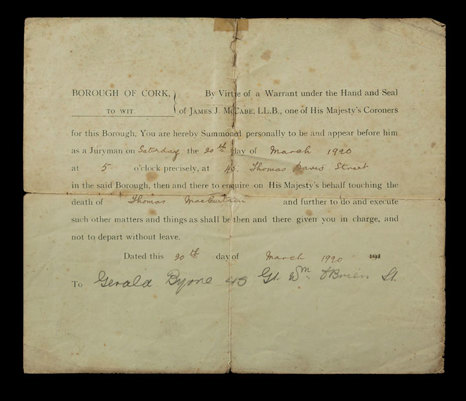 BOROUGH OF CORK, By Virtue of a Warrant under the Hand and Seal
TO WIT of JAMES J. McCABE, LL.B., one of His Majesty's Coroners
for this Borough, You are hereby Summoned personally to be and appear before him
as a Juryman on Saturday the 20th day of March 1920
at 5 o'clock precisely, at 40, Thomas Davis Street
in the said Borough, then and there to enquire on His Majesty's behalf touching the
death of Thomas MacCurtain and further to do and execute
such other matters and things as shall be then and there given you in charge, and
not to depart without leave.
Dated this 20th day of March 1920
To Gerald Byrne Gt. Wm. O'Brien St.